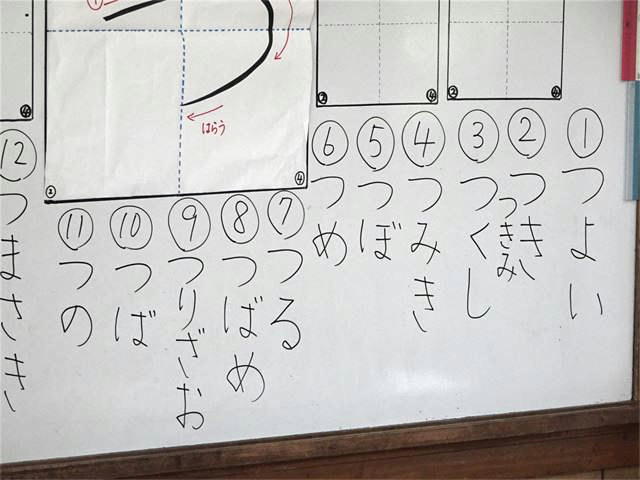 つ
はらう
② ④
② ④
② ④
④
①つよい
②つき
つきみ
③つくし
④つみき
⑤つぼ
⑥つめ
⑦つる
⑧つばめ
⑨つりざお
⑩つば
⑪つの
⑫つまさき